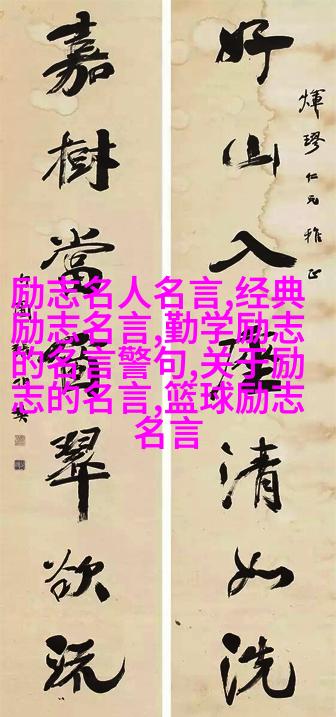 好山入座清如洗
煇璆仁兄雅正
嘉樹當窗翠欲流
励志名人名言,经典
励志名言,勤学励志
的名言警句,关于励
志的名言,篮球励志
名言